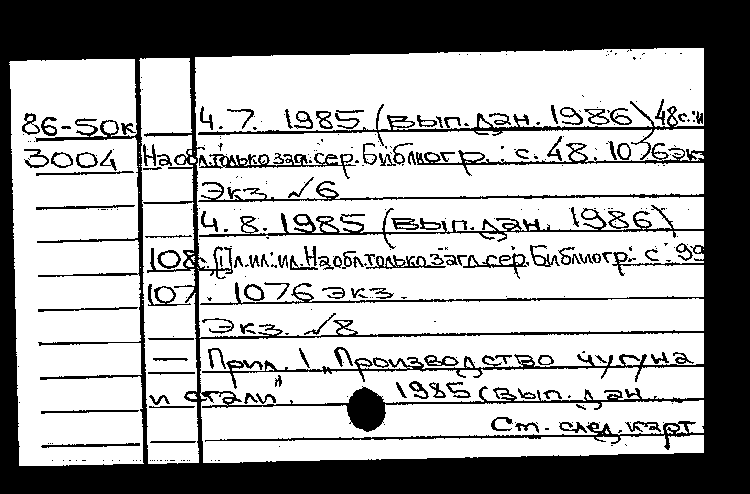 86-50к 4.7. 1985. (вып.дан. 1986) 48с.:и
3004 На обл.только загл.сер.Библиогр.: с. 48. 1076экз
Экз. №6
4.8. 1985 (вып.дан. 1986)
108с.,[1]л.ил.:ил.На обл.только загл.сер.Библиогр.: с. 99
107. 1076 экз.
Экз. №8
— Прил. 1 „Производство чугуна
и стали". 1985 (вып. дан
Ст. след. карт.